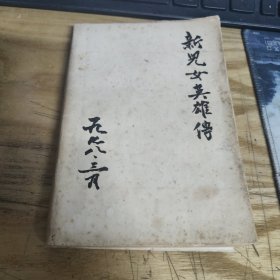 新兒女英雄傳
一九七八·三月